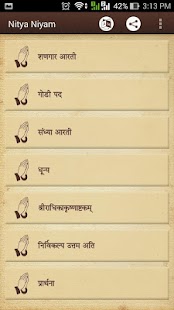 42% 3:13 PM
Nitya Niyam
शणगार आरती
गोडी पद
संध्या आरती
धून्य
श्रीराधिकाकृष्णाष्टकम्
निर्विकल्प उत्तम अति
प्रार्थना